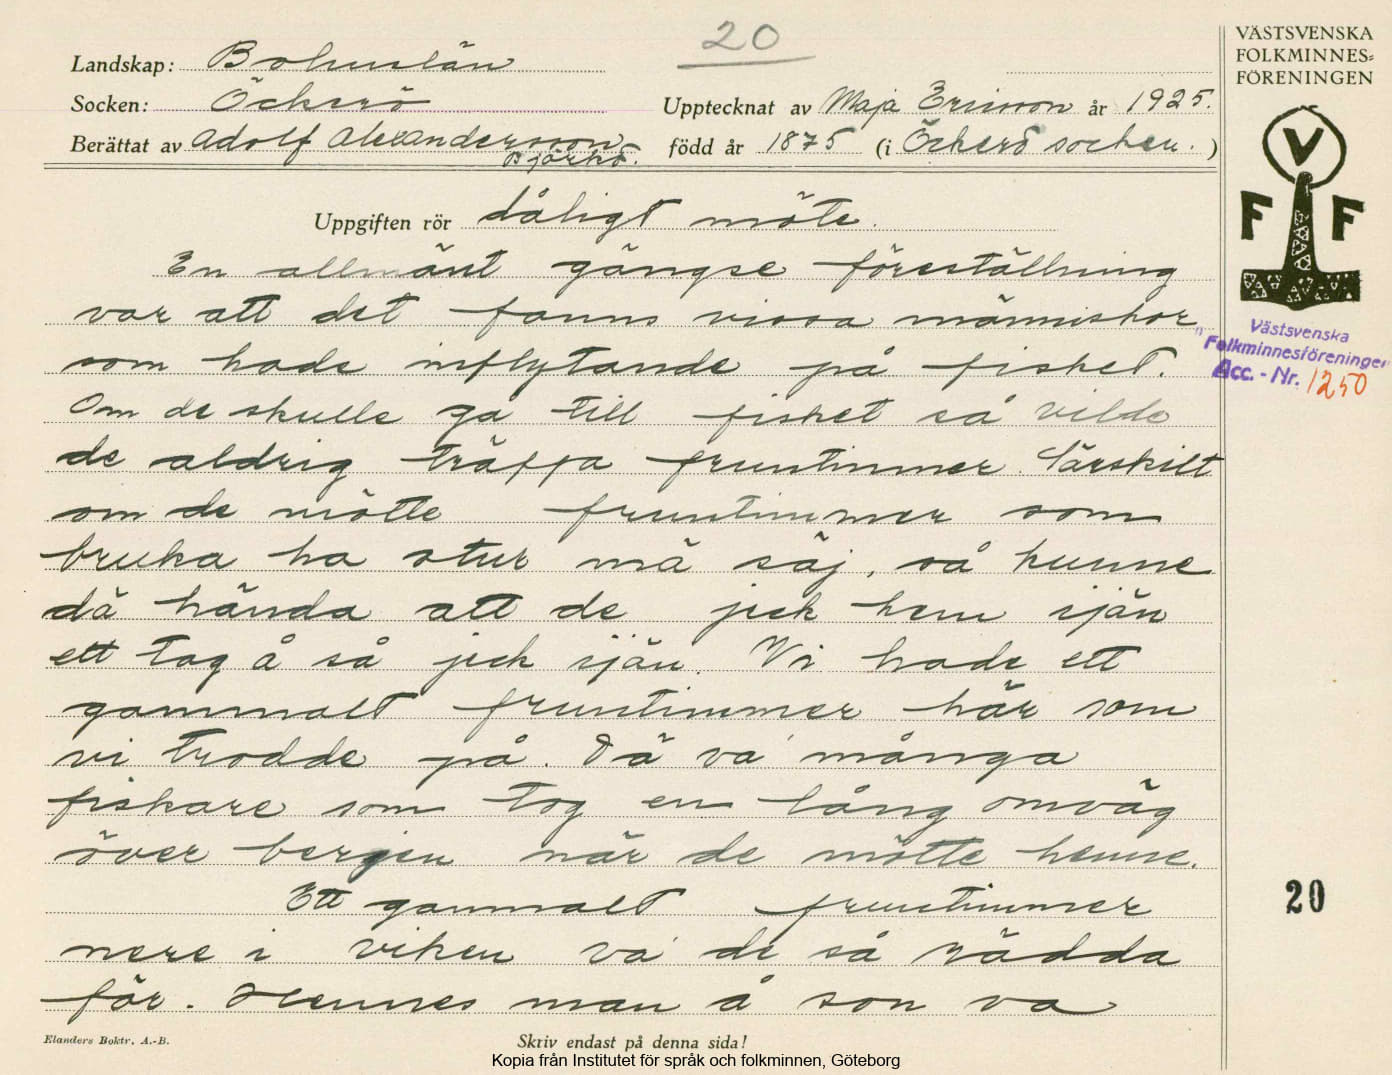 20
VÄSTSVENSKA
FOLKMINNES=
FÖRENINGEN
Landskap: Bohuslän
Socken: Öckerö
Upptecknat av Maja Ericson år 1925.
Berättat av Adolf Alexandersson
Björkö.
född år 1875 (i Öckerö socken.)
V
F F
Uppgiften rör dåligt möte.
En allmänt gängse föreställning
var att det fanns vissa människor
som hade inflytande på fisket.
Om de skulle ga till fisket så vilde
de aldrig träffa fruntimmer. Särskilt
om de mötte fruntimmer som
bruka ha otur mä säj, så kunne
dä hända att de jick hem ijän
ett tag å så jick ijän. Vi hade ett
gammalt fruntimmer här som
vi trodde på. Dä va' många
fiskare som tog en lång omväg
över bergen när de mötte henne.
Ett gammalt fruntimmer
nere i viken va' de så rädda
för. Hennes man å son va
Västsvenska
Folkminnesföreningen
Acc. - Nr. 1250
20
Elanders Boktr. A.-B.
Skriv endast på denna sida!
Kopia från Institutet för språk och folkminnen, Göteborg